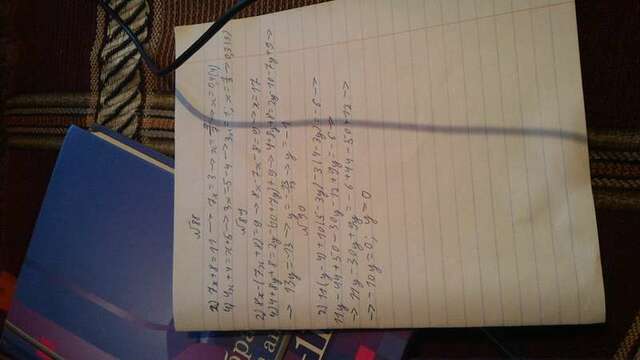 №88
2) 7x+8=11 → 7x=3 → x=3/7 → x=0,4(4)
4) 4x+4=x+5 → 3x=5-4 → 3x=1, x=1/3 → 0,3(3)
№89
2) 8x-(7x+8)=9 → 8x-7x-8=9 → x=17
4) 4+8y+8=2y-(10+7y)+9 → 4+8y+8=2y-10-7y+9 →
→ 13y=-13 → y=-13/13 → y=-1
№90
2) 11(y-4)+10(5-3y)-3(4-3y)=-6 →
11y-44+50-30y-12+9y=-6 →
→ 11y-30y+9y=-6+44-50+12 →
→ -10y=0; y=0
бра
-1